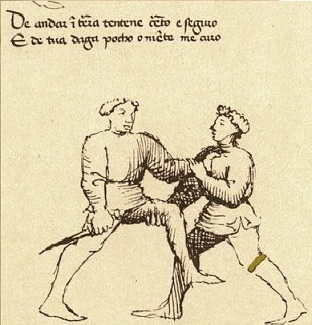 De andar ī tēra tentene c̄eto e seguro
E de tua daga pocho o nīete me curo